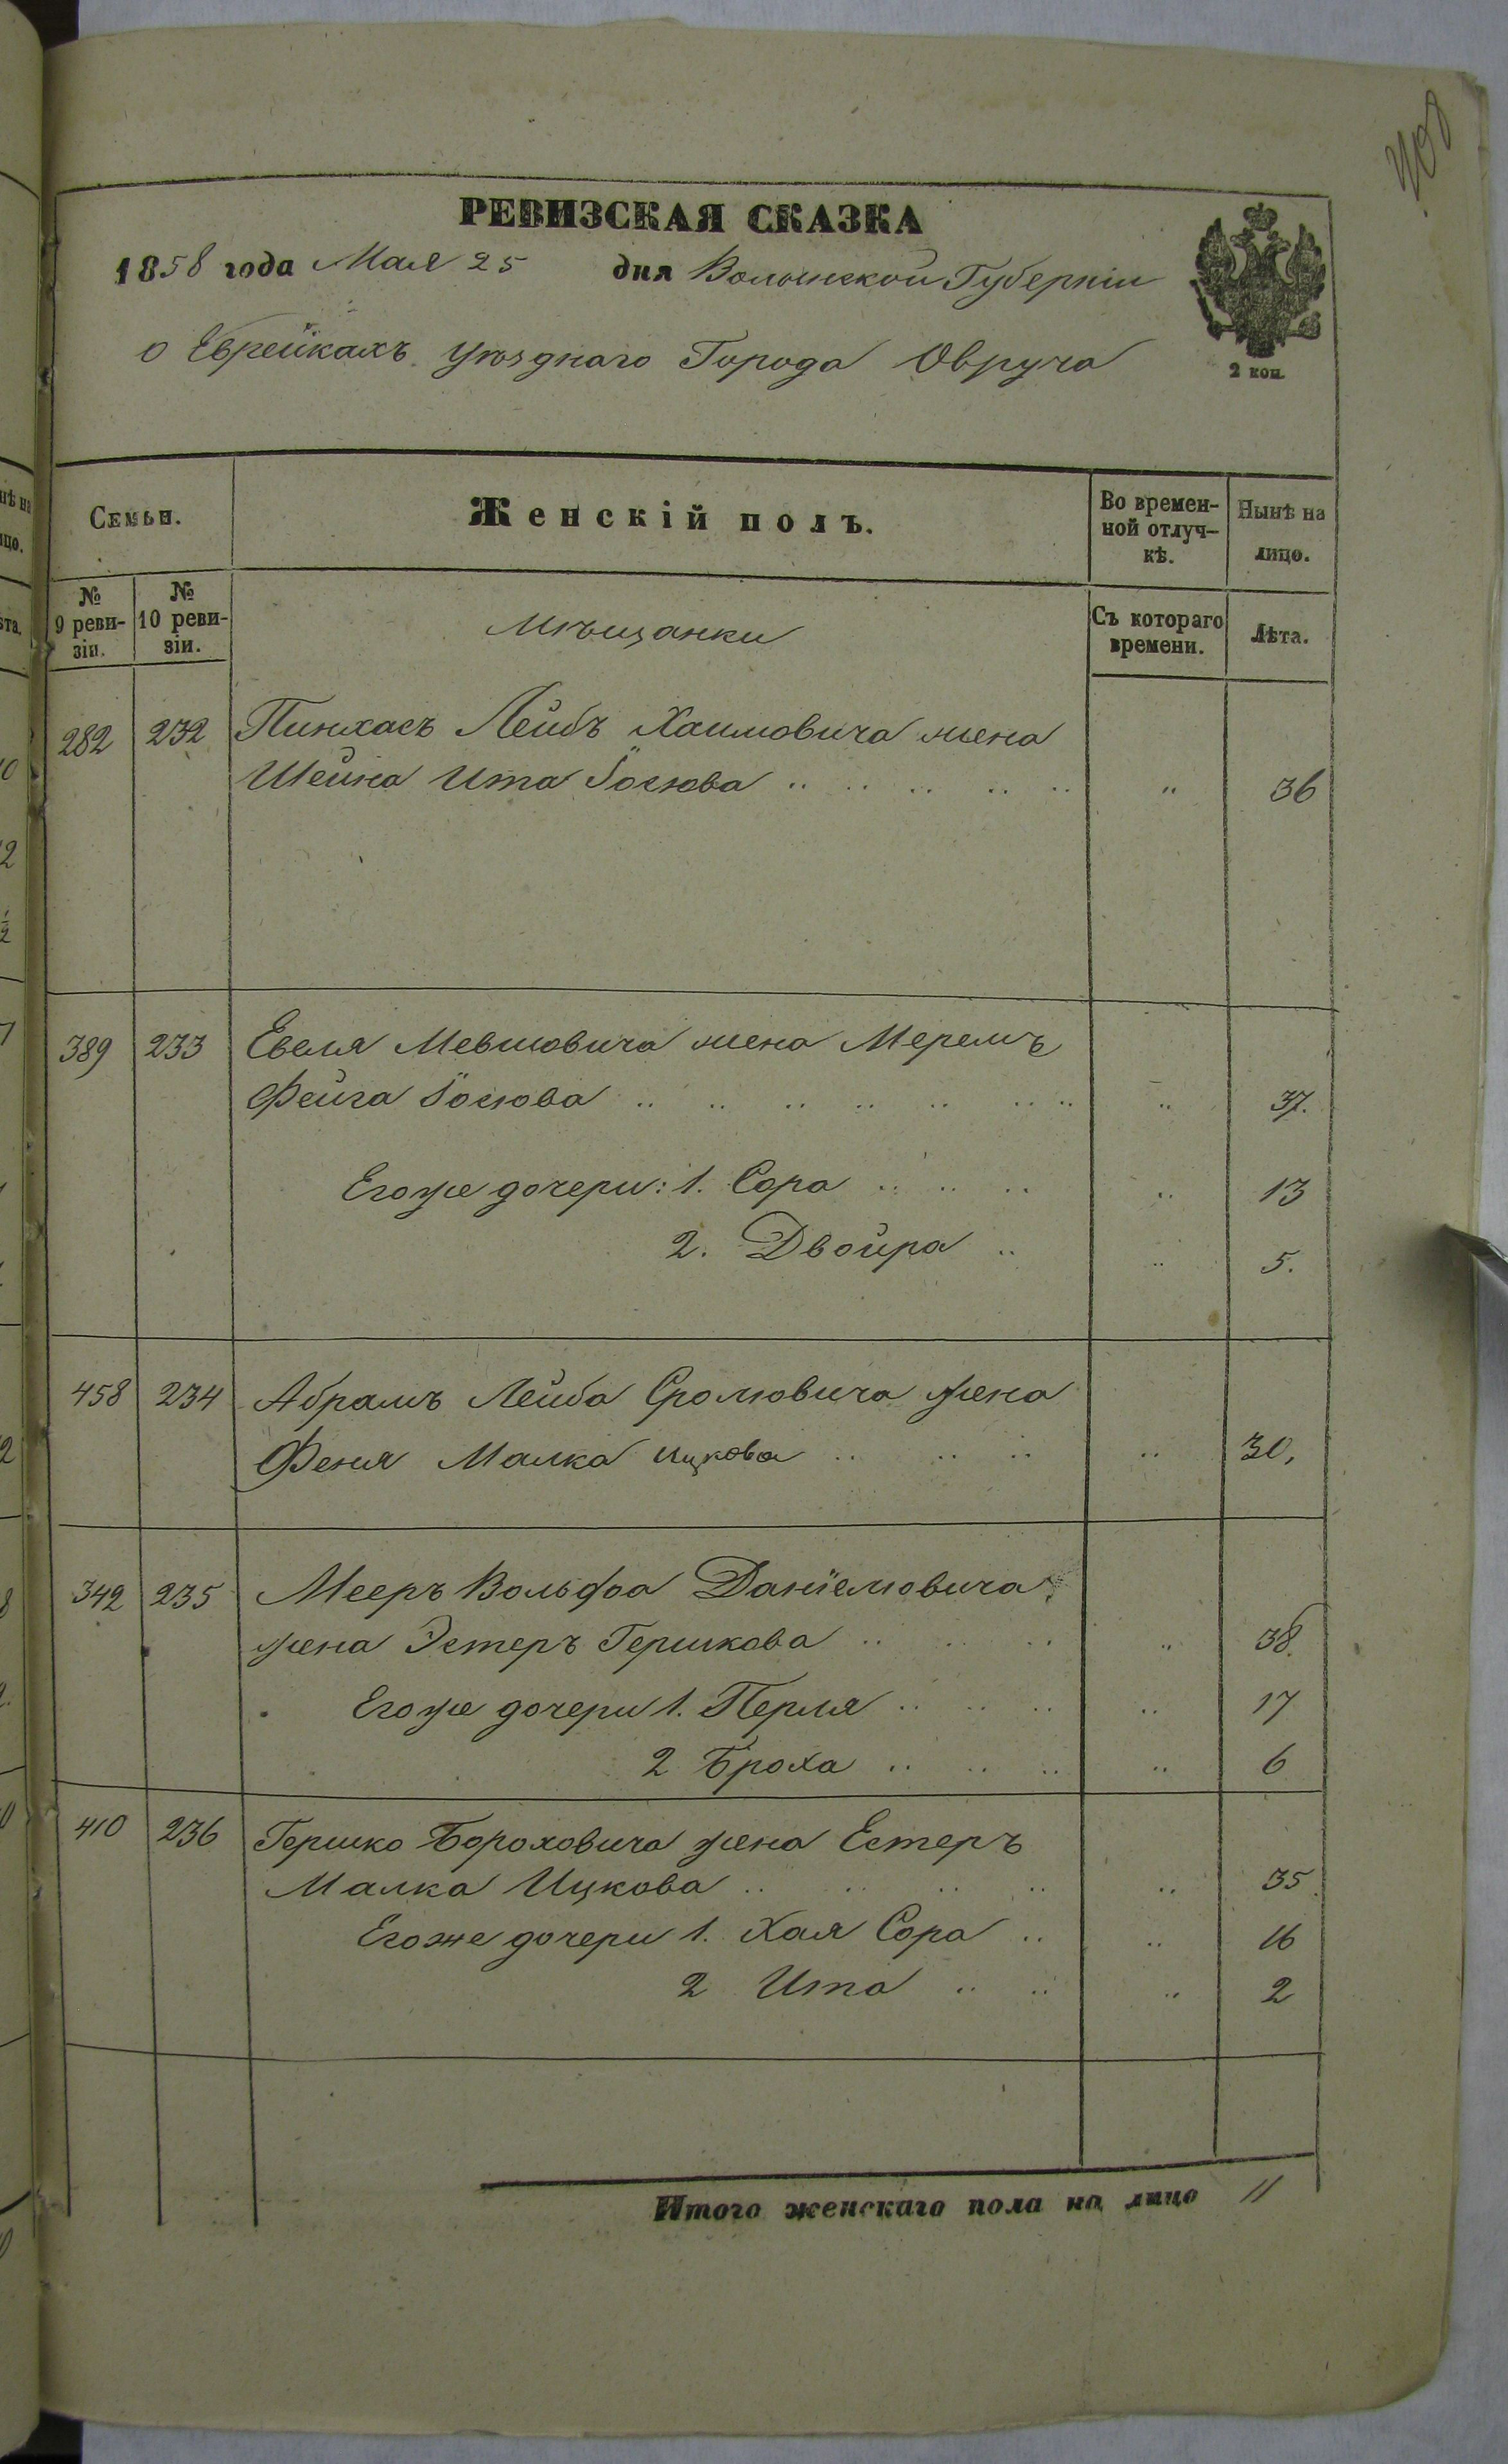 РЕВИЗСКАЯ СКАЗКА
1858 года Мая 25 дня Волынской Губерніи
о Еврейкахъ уѣзднаго Города Овруча
2 коп.
Семьи. Женскій полъ. Во времен-ной отлуч-кѣ. Нынѣ на лицо.
№ 9 реви-зіи. № 10 реви-зіи. Мѣщанки Съ котораго времени. Лѣта.
282 232 Пинхасъ Лейбъ Хаимовича жена
Шейна Ита Іосіова .. .. .. .. .. " 36
389 233 Евеля Мевшовича жена Меремъ
Фейга Іосіова .. .. .. .. .. .. .. " 37.
Егоже дочери: 1. Сора .. .. .. " 13
2. Двойра .. " 5.
458 234 Абрамъ Лейба Сролювича жена
Феня Малка Ицкова .. .. .. " 30,
342 235 Мееръ Вольфа Даніелювича
жена Эстеръ Гершкова .. .. .. " 38.
Егоже дочери 1. Перля .. .. .. " 17
2 Броха .. .. .. " 6
410 236 Гершко Бороховича жена Естеръ
Малка Ицкова .. .. .. .. " 35
Егоже дочери 1. Хая Сора .. " 16
2 Ита .. .. " 2
Итого женскаго пола на лицо 11